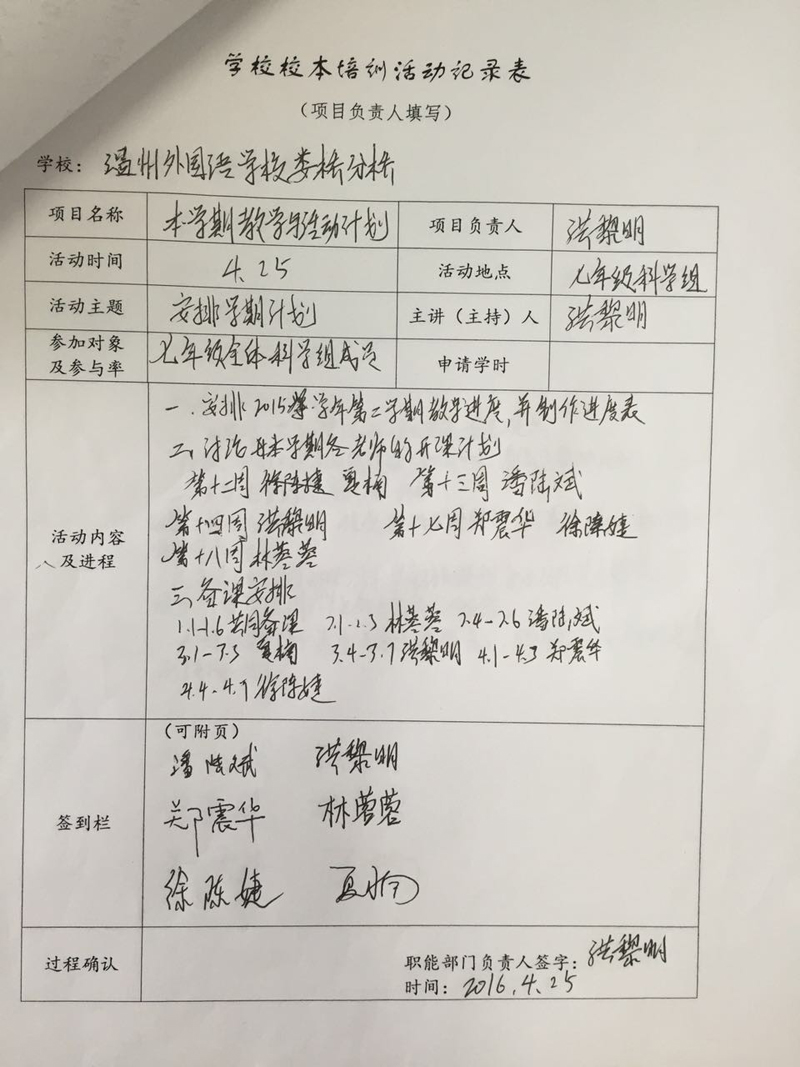 学校校本培训活动记录表
（项目负责人填写）
学校：温州外国语学校娄桥分校
项目名称 本学期教学与活动计划 项目负责人 洪黎明
活动时间 4.25 活动地点 七年级科学组
活动主题 安排学期计划 主讲（主持）人 洪黎明
参加对象及参与率 七年级全体科学组成员 申请学时
活动内容及进程
一、安排2015学年第二学期教学进度，并制作进度表
二、讨论本学期各老师的开课计划
第十二周 徐陈婕 夏楠 第十三周 潘陆斌
第十四周 洪黎明 第十七周 郑震华 徐陈婕
第十八周 林蓉蓉
三、备课安排
1.1-1.6 共同备课 2.1-2.3 林蓉蓉 2.4-2.6 潘陆斌
3.1-3.3 夏楠 3.4-3.7 洪黎明 4.1-4.3 郑震华
4.4-4.7 徐陈婕
签到栏
（可附页）
潘陆斌 洪黎明
郑震华 林蓉蓉
徐陈婕 夏楠
过程确认
职能部门负责人签字：洪黎明
时间：2016.4.25